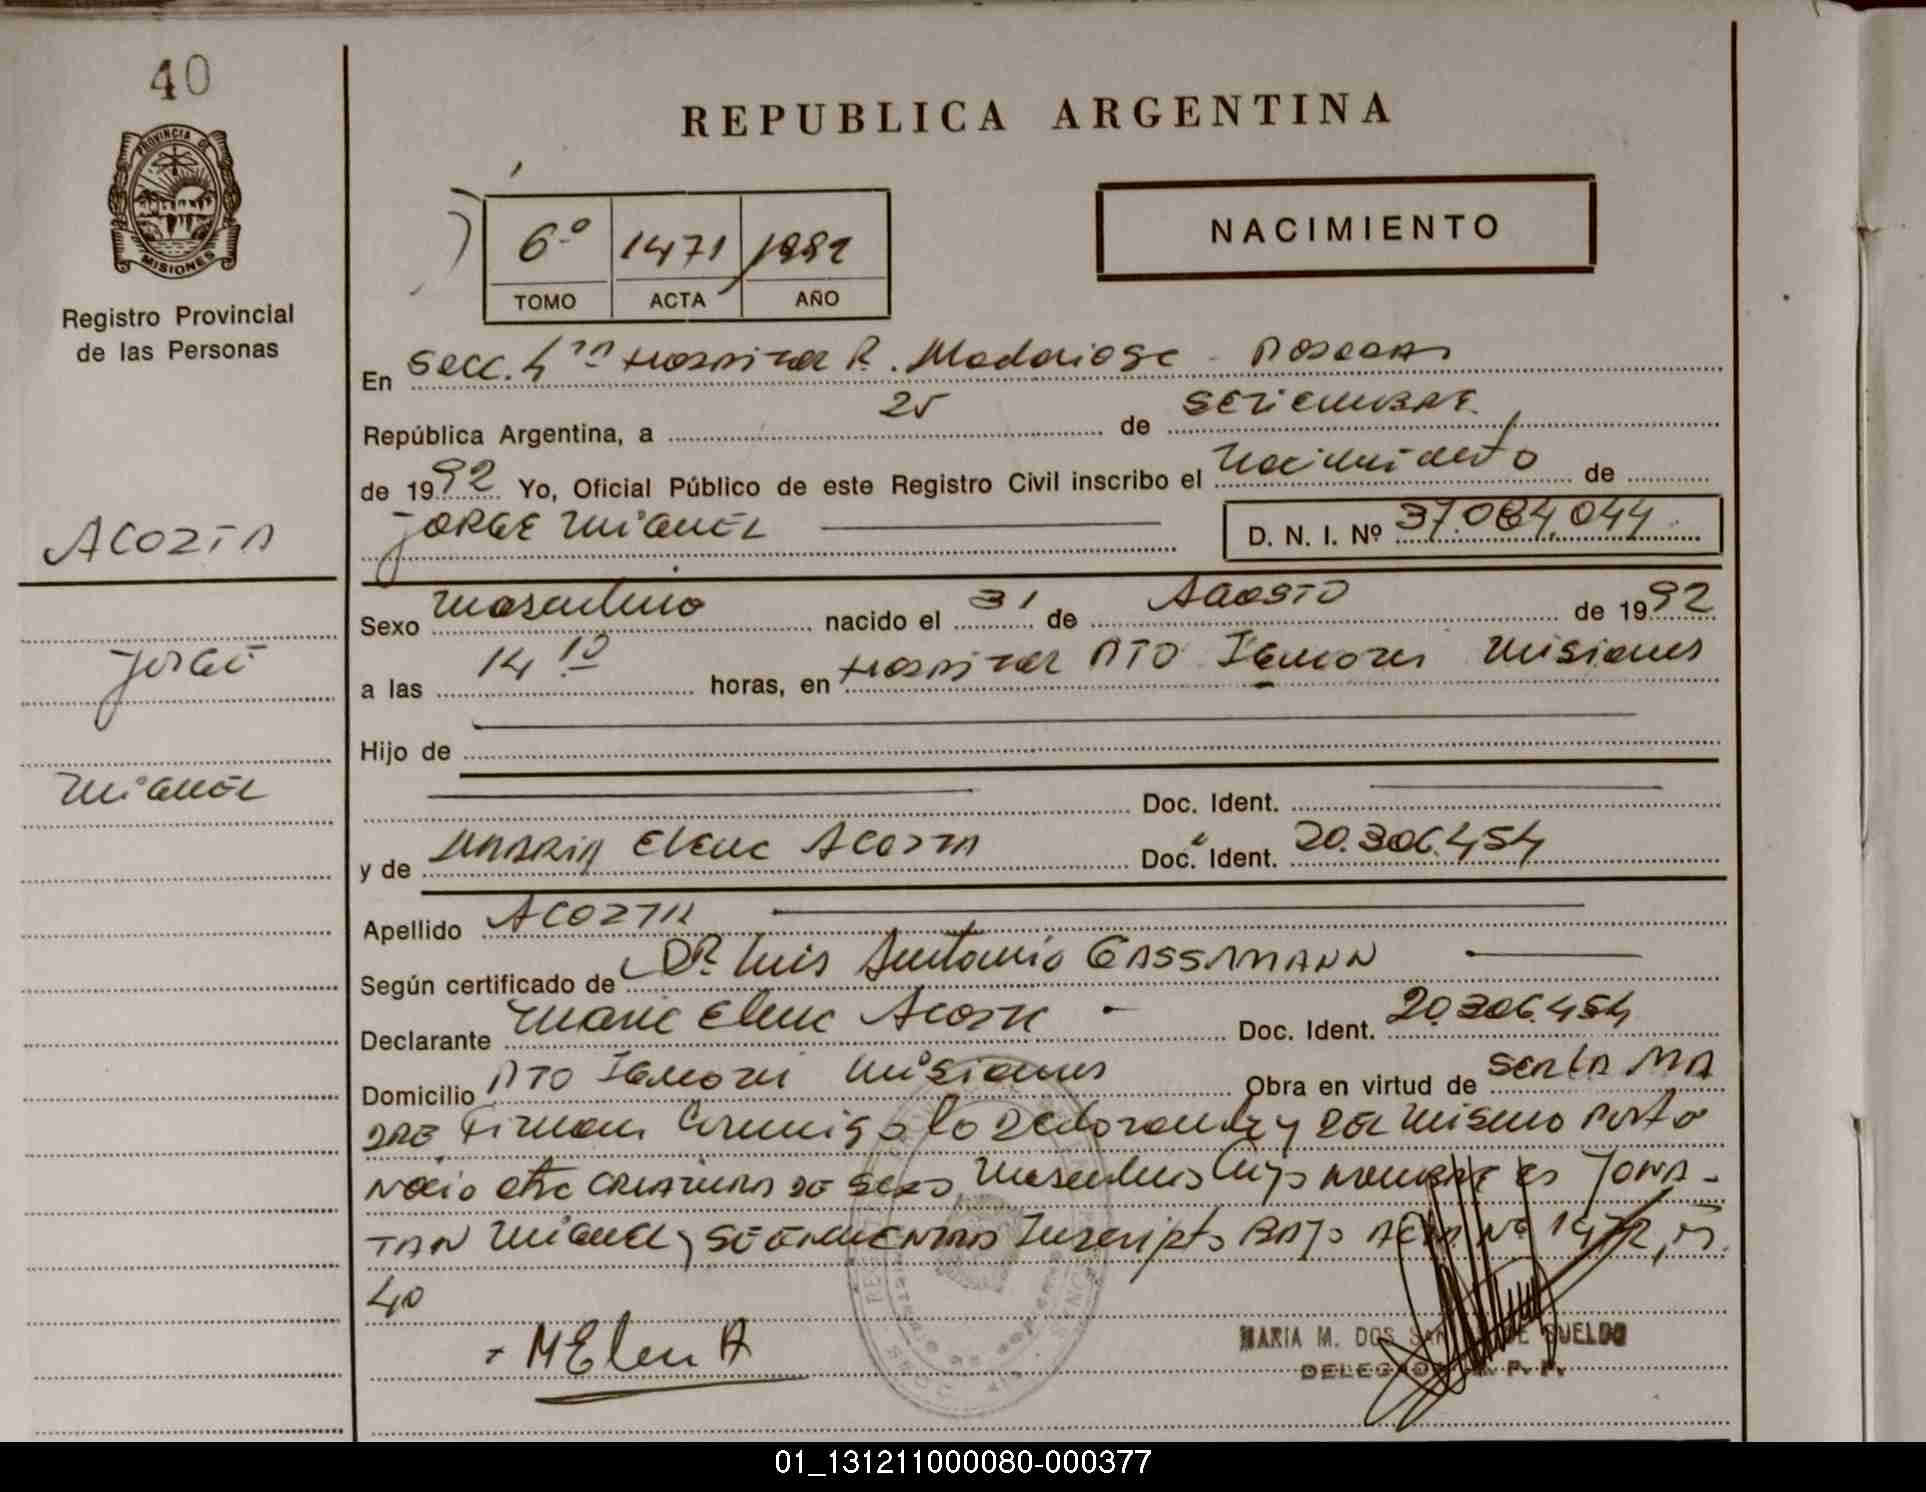 40
PROVINCIA DE
MISIONES
Registro Provincial
de las Personas
REPUBLICA ARGENTINA
6º 1471 1992
TOMO ACTA AÑO
NACIMIENTO
En Secc. 4ta Hospital R. Madariaga - Posadas
República Argentina, a 25 de SETIEMBRE
de 1992 Yo, Oficial Público de este Registro Civil inscribo el Nacimiento de
JORGE MIGUEL D. N. I. Nº 37.084.044
ACOSTA
Jorge
Miguel
Sexo masculino nacido el 31 de AGOSTO de 1992
a las 14 10 horas, en Hospital PTO Iguazu Misiones
Hijo de
Doc. Ident.
y de MARIA Elena ACOSTA Doc. Ident. 20.306.454
Apellido ACOSTA
Según certificado de DR. Luis Antonio GASSMANN
Declarante Maria Elena Acosta - Doc. Ident. 20.306.454
Domicilio PTO Iguazu Misiones Obra en virtud de SER LA MA
DRE Firman Conmigo la Declarante y DEL Mismo Parto
Nacio otra CRIATURA DE SEXO Masculino Cuyo NOMBRE ES JONA-
TAN Miguel y SE ENCUENTRA Inscripto BAJO ACTA Nº 1472,
40
M Elena A
MARIA M. DOS DE SUELDO
01_131211000080-000377